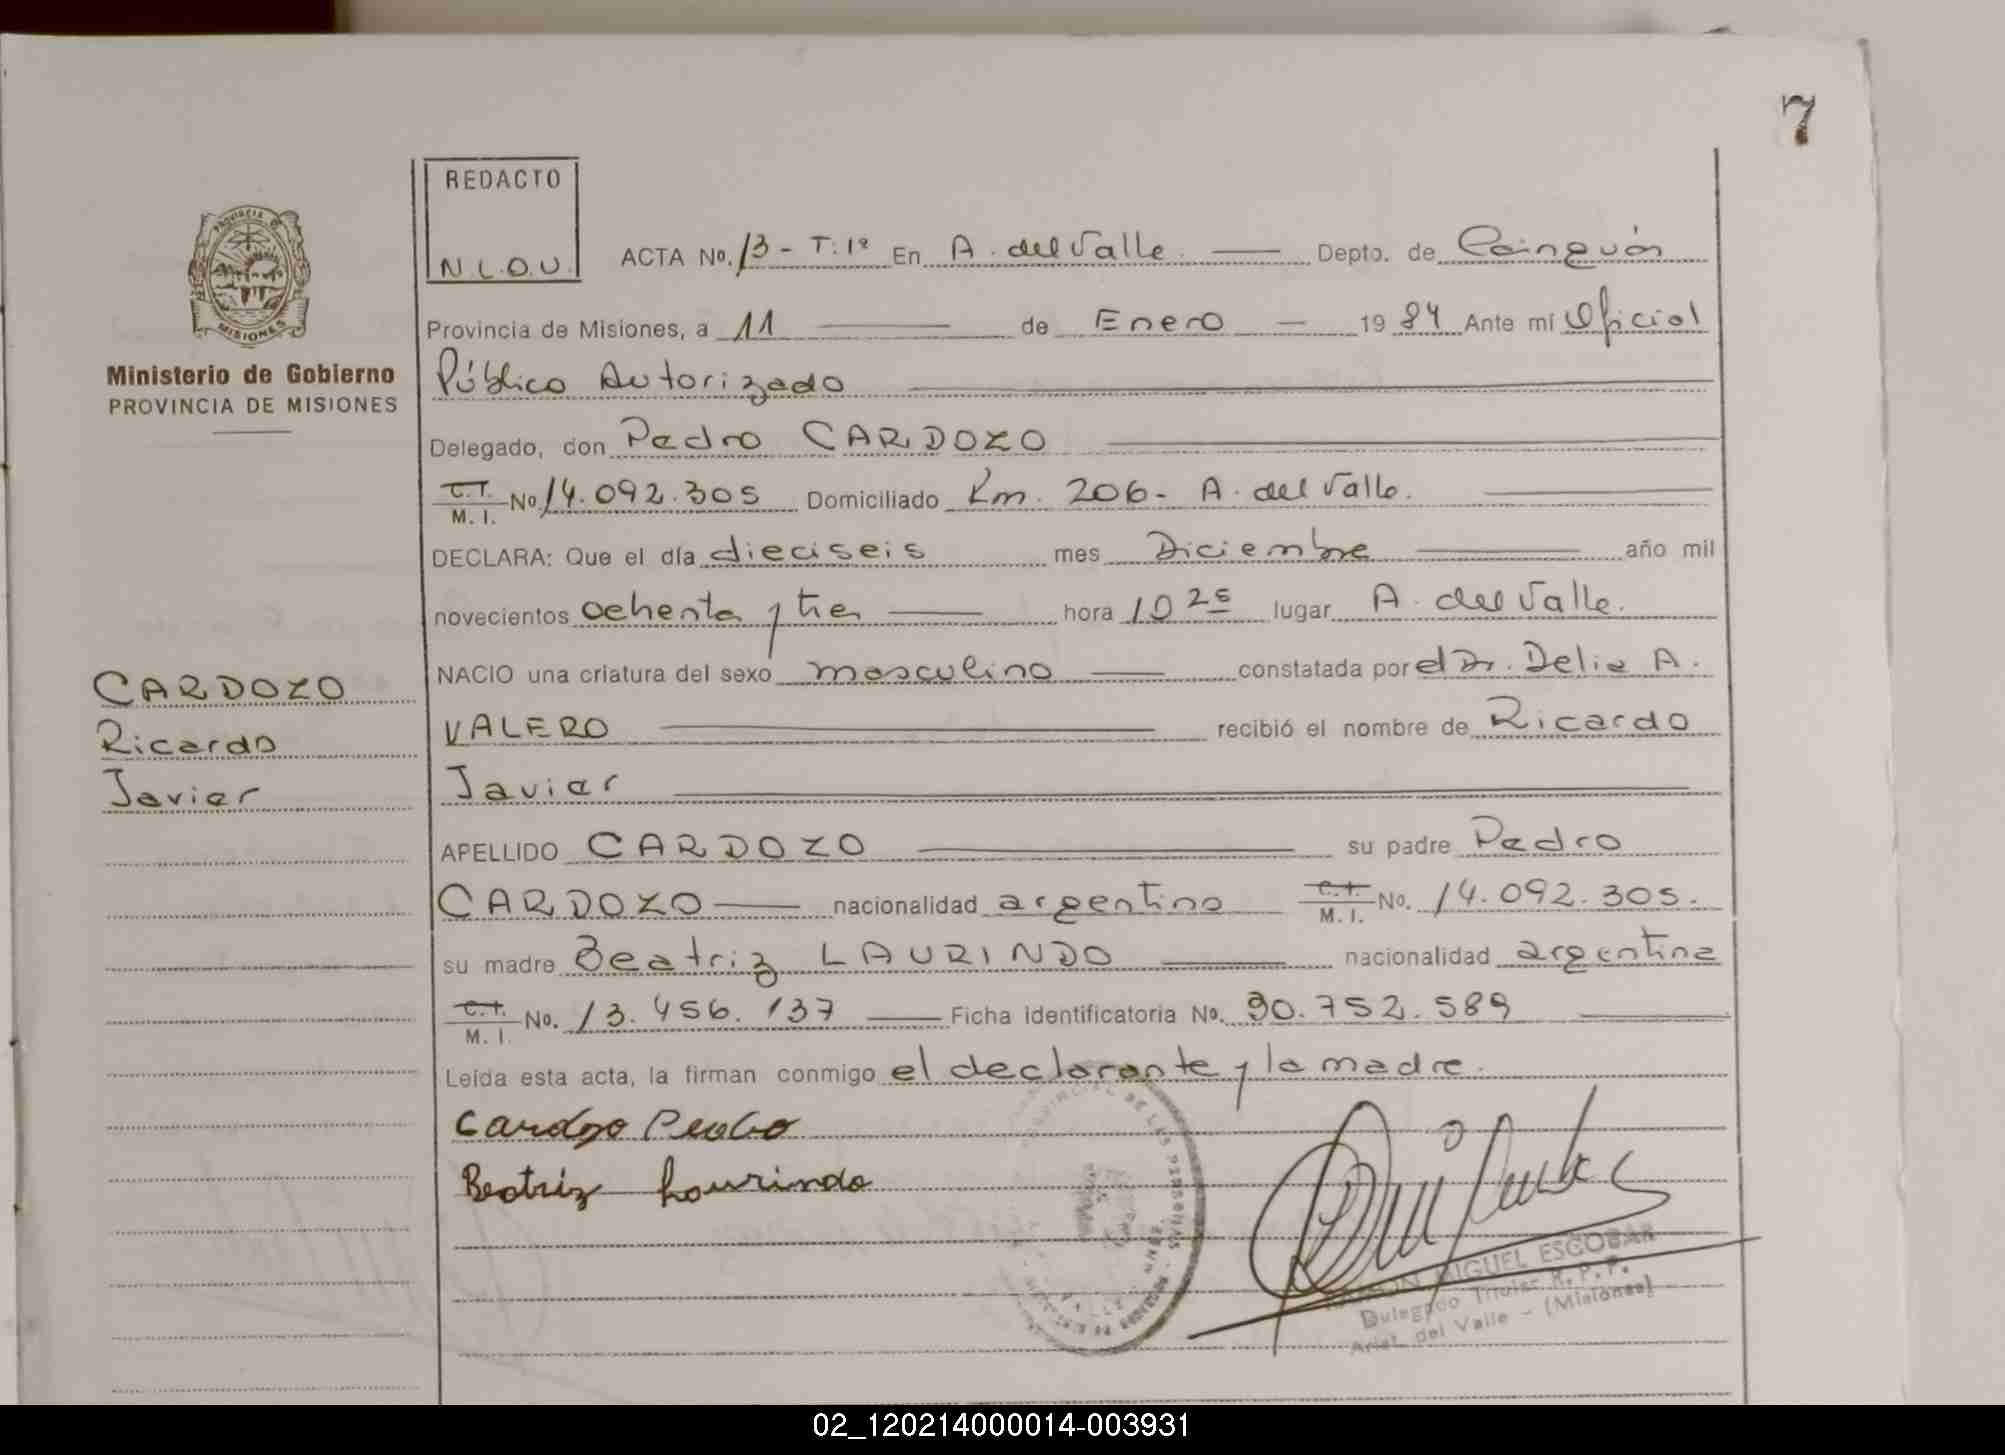 7
REDACTO
N L. O. U.
PROVINCIA D
MISIONES
Ministerio de Gobierno
PROVINCIA DE MISIONES
ACTA No. 13 - T: 1º En A. del Valle. Depto. de Cainguás
Provincia de Misiones, a 11 de Enero 19 84 Ante mí Oficial
Público Autorizado
Delegado, don Pedro CARDOZO
C.I. M. I. No. 14.092.305 Domiciliado Km. 206 - A. del Valle.
DECLARA: Que el día dieciseis mes Diciembre año mil
novecientos ochenta y tres hora 10 25 lugar A. del Valle.
NACIO una criatura del sexo masculino constatada por el Dr. Delia A.
VALERO recibió el nombre de Ricardo
Javier
CARDOZO
Ricardo
Javier
APELLIDO CARDOZO su padre Pedro
CARDOZO nacionalidad argentino C.I. M. I. No. 14.092.305.
su madre Beatriz LAURINDO nacionalidad argentina
C.I. M. I. No. 13.456.137 Ficha identificatoria No. 30.752.589
Leída esta acta, la firman conmigo el declarante y la madre.
Cardozo Pedro
Beatriz Lourindo
DE LAS PERSONAS
RAMON MIGUEL ESCOBAR
Delegado Titular R. P. P.
Arist. del Valle - (Misiones)
02_120214000014-003931